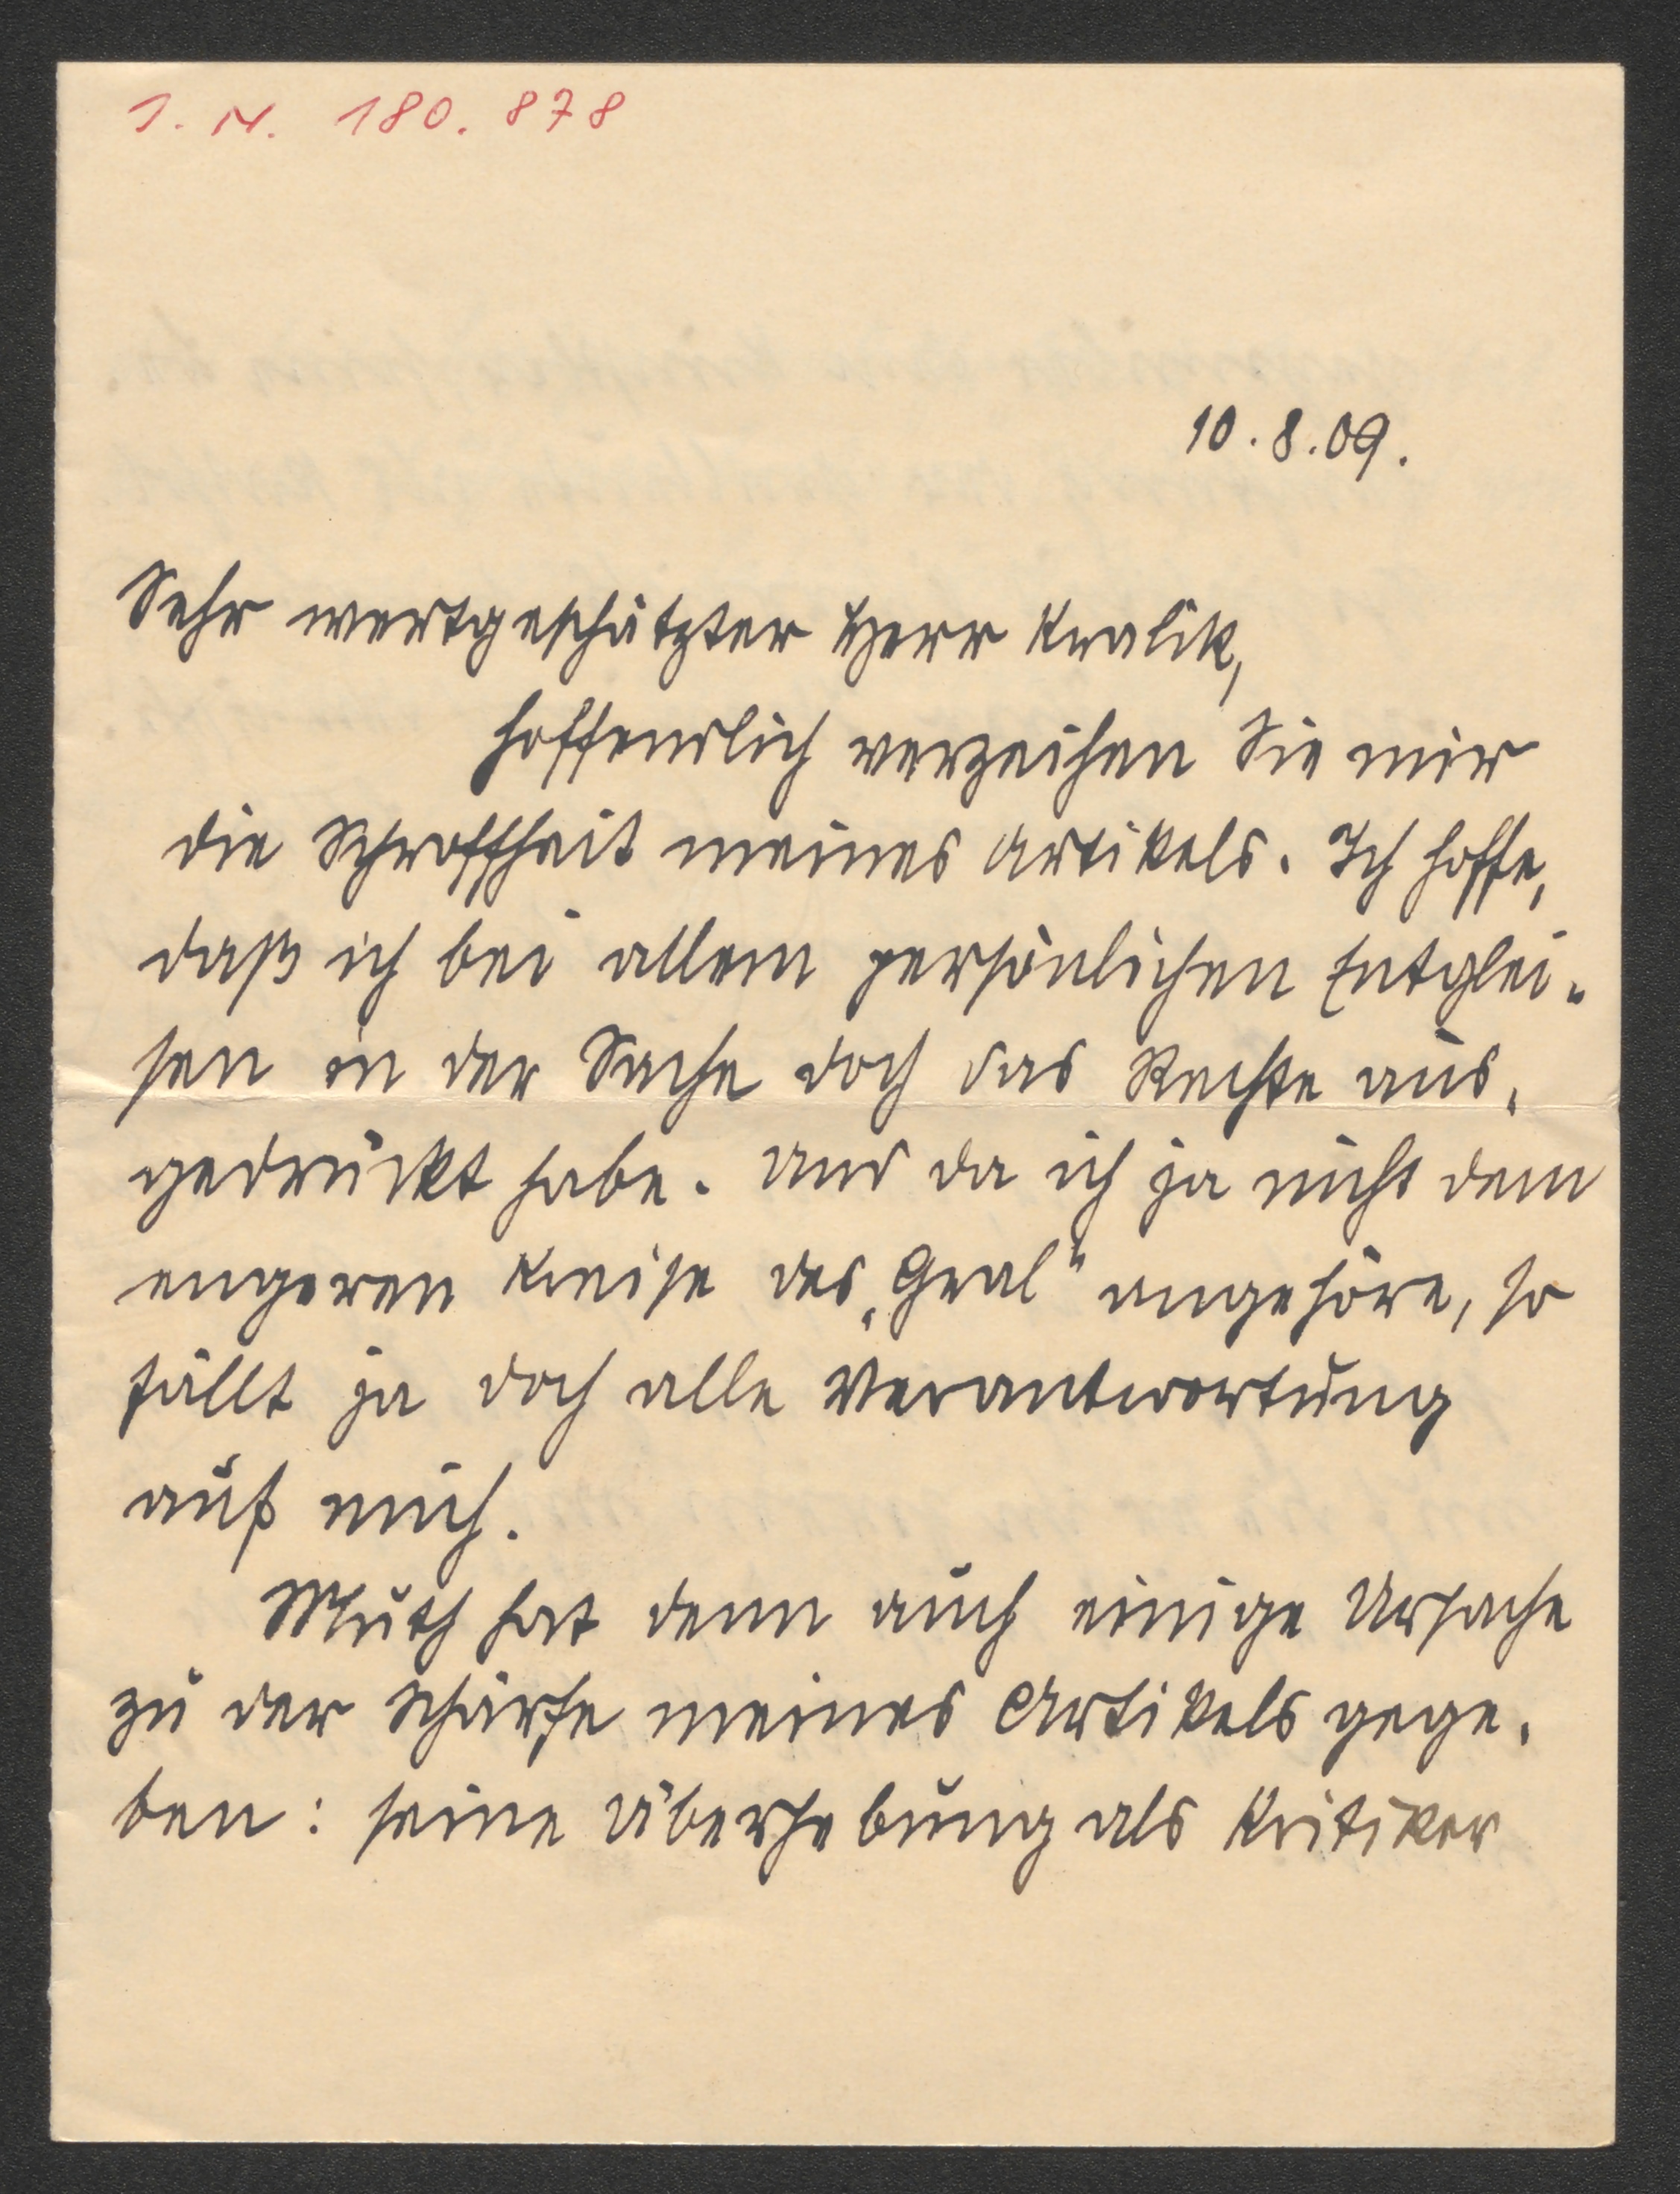 J. N. 180.878
10.8.09.
Sehr wertgeschätzter Herr Kralik,
hoffendlich verzeihen Sie mir
die Schroffheit meines Artikels. Ich hoffe,
daß ich bei allem persönlichen Entglei-
sen in der Sache doch das Rechte aus-
gedrückt habe. Und da ich ja nicht dem
engeren Kreise des „Gral" angehöre, so
fällt ja doch alle Verantwortung
auf mich.
Muth hat denn auch einige Ursache
zu der Schärfe meines Artikels gege-
ben: seine Überhebung als Kritiker